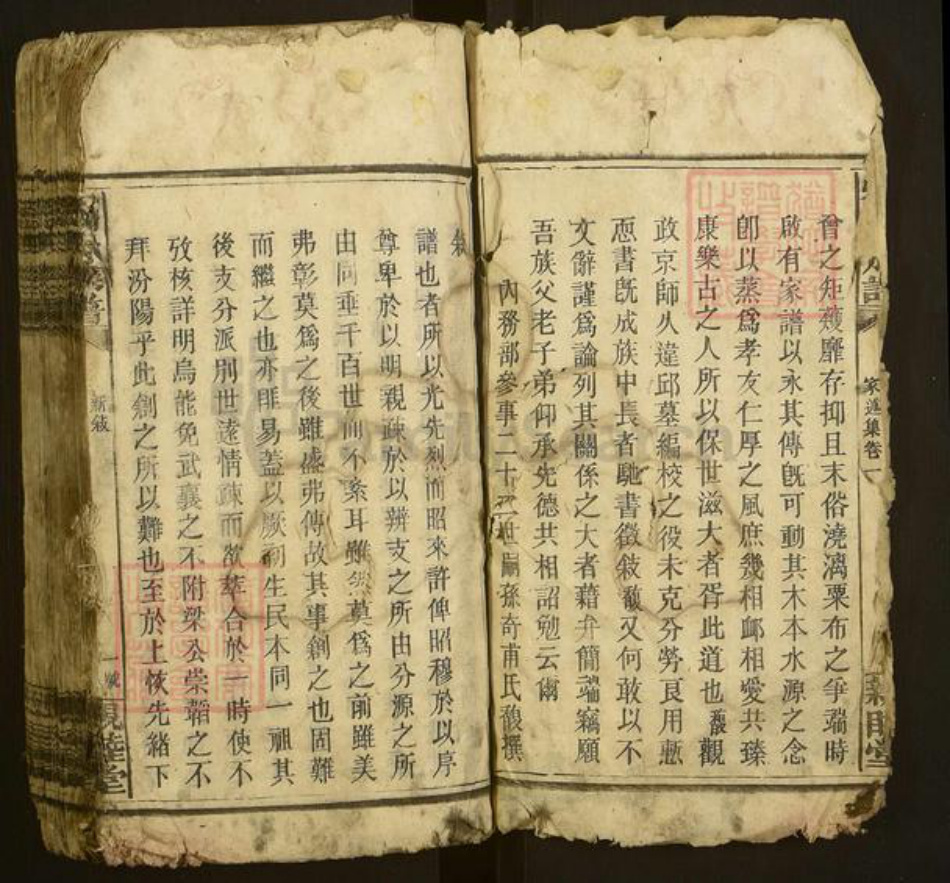 曾之矩矱靡存抑且末俗澆漓粟布之爭瑞時
啟有家譜以永其傳旣可動其木本水源之念
卽以蒸爲孝友仁厚之風庶幾相卹相愛共臻
康樂古之人所以保世滋大者胥此道也馥觀
政京師久違邱墓編校之役未克分勞良用慙
恧書旣成族中長者馳書徵敍馥又何敢以不
文辭謹爲論列其關係之大者藉弁簡端竊願
吾族父老子弟仰承先德共相詔勉云爾
內務部參事二十世嗣孫奇甫氏馥撰
家乘集卷一
敍
譜也者所以光先烈而昭來許俾昭穆於以序
尊卑於以明親疎於以辨支之所由分源之所
由同垂千百世而不紊耳雖然莫爲之前雖美
弗彰莫爲之後雖盛弗傳故其事創之也固難
而繼之也亦匪易蓋以厥初生民本同一祖其
後支分派別世遠情疎而欲萃合於一時使不
攷核詳明烏能免武襄之不附梁公崇韜之不
拜汾陽乎此創之所以難也至於上恢先緒下
新敍
親睦堂